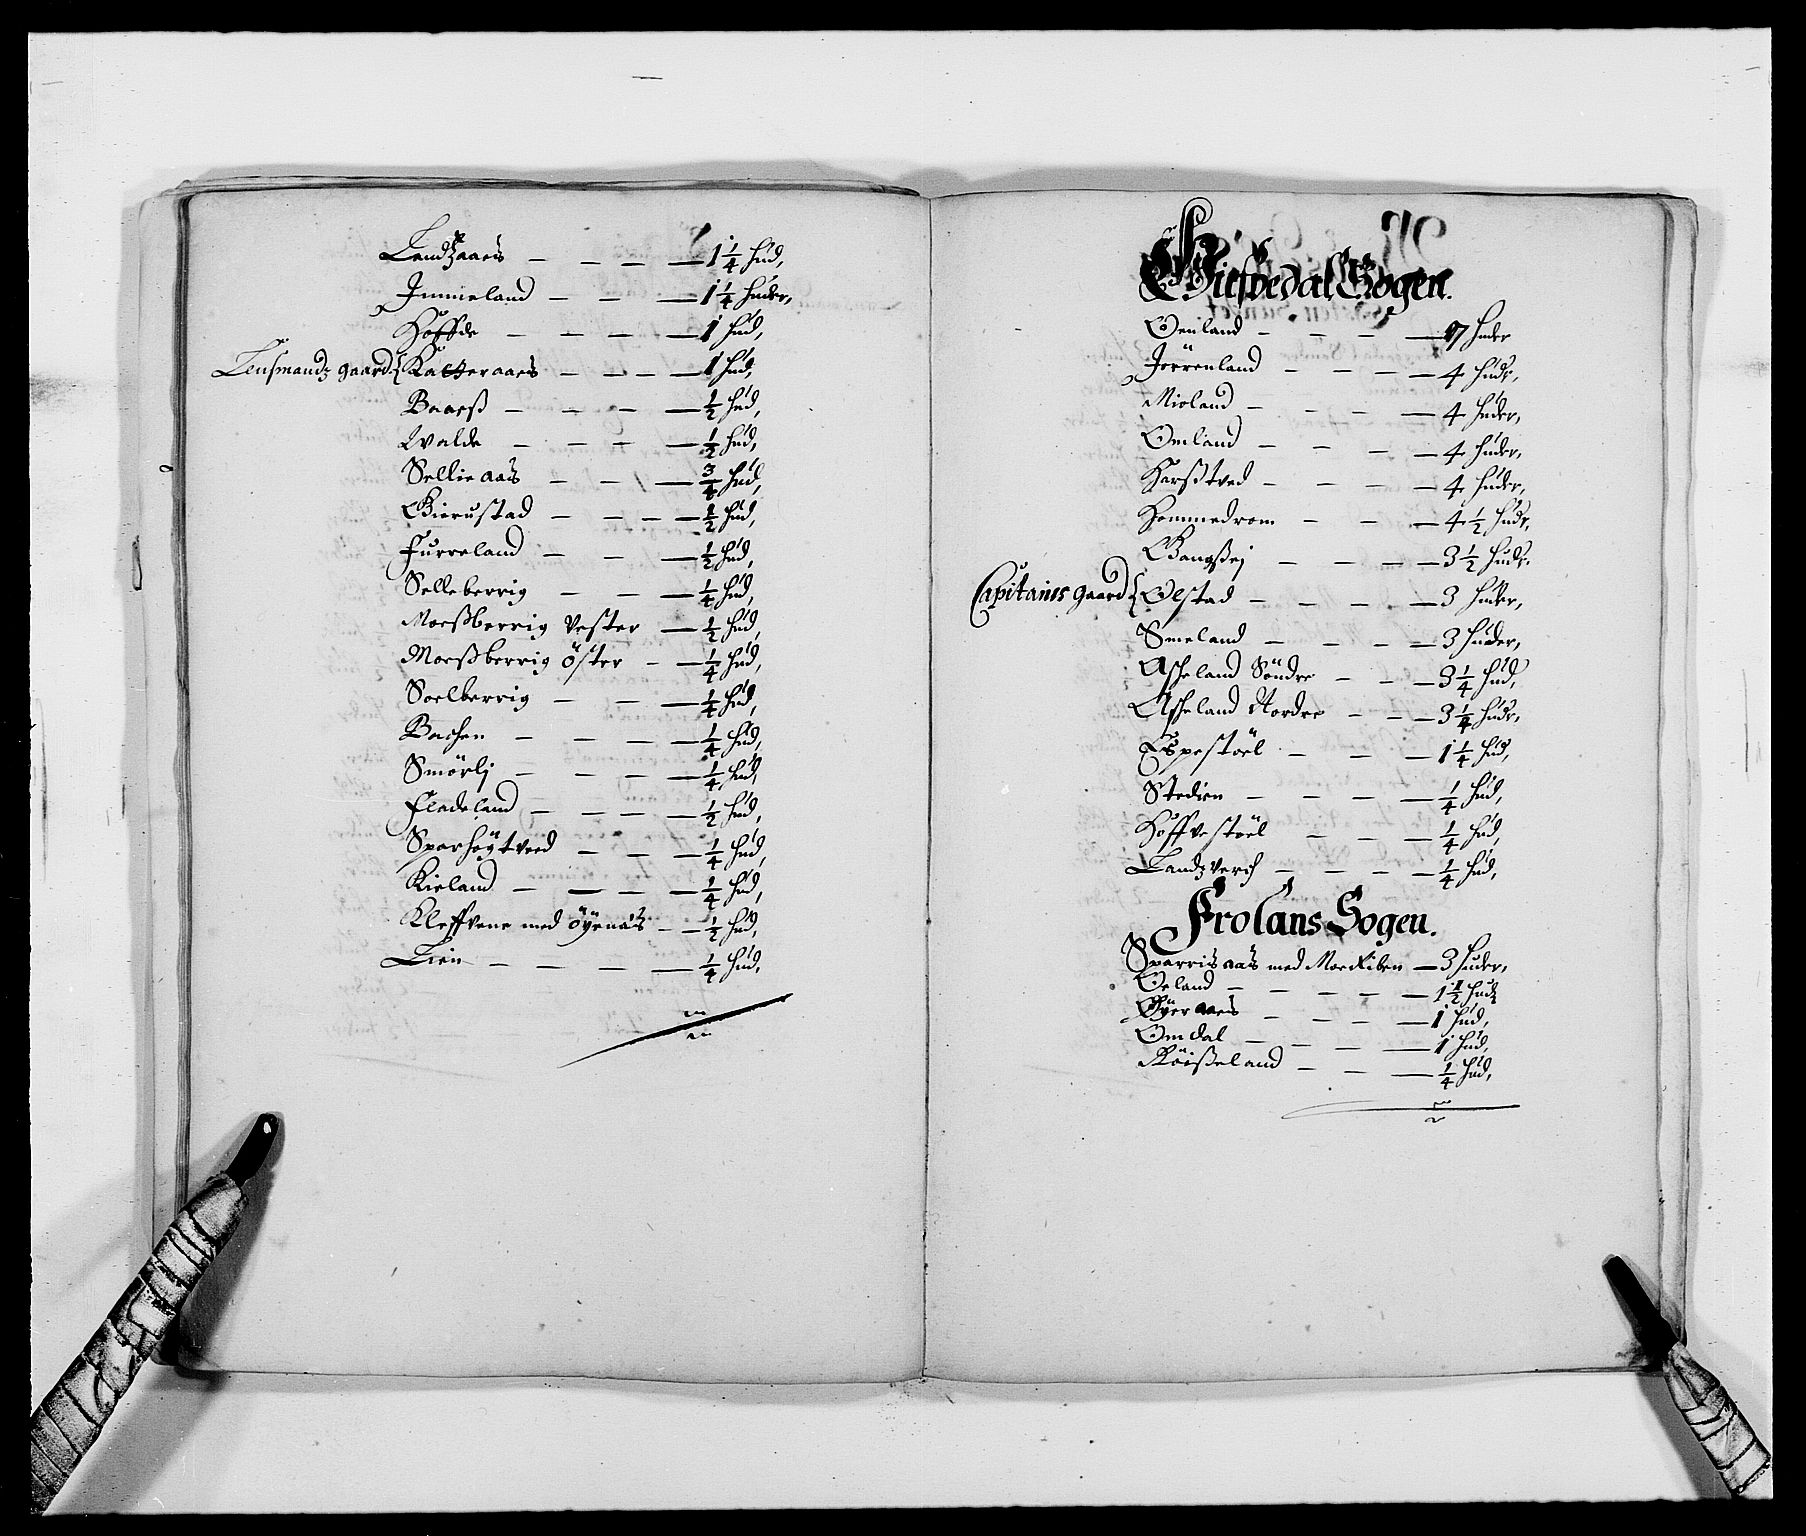 Landzaaes — — — — 1 1/4 hud,
Immeland — — — 1 1/4 huder,
Hoffde — — — — 1 hud,
Lensmandz gaard { Katteraaes — — — 1 hud,
Baaesß — — — — 1/2 hud,
Walde — — — — 1/2 hud,
Sellieaas — — — 3/4 hud,
Bierustad — — — — 1/2 hud,
Furreland — — — 1/2 hud,
Selleberrig — — — 1/4 hud,
Moesßberrig Vester — 1/2 hud,
Moesßberrig öster — — 1/4 hud,
Soelberrig — — — 1/4 hud,
Bachen — — — — 1/4 hud,
Smörlj — — — — 1/4 hud,
Fladeland — — — — 1/2 hud,
Sparhögtved — — — 1/4 hud,
Kieland — — — — 1/4 hud,
Kleffvene med öyenäs — — 1/2 hud,
Lien — — — — 1/4 hud,
Giefvedal Sogen.
Oenland — — — — 7 huder
Jörrenland — — — — 4 hudr,
Mioland — — — — 4 huder,
Omland — — — — 4 huder,
Harßtved — — — — 4 huder,
Hommedrom — — — 4 1/2 hudr,
Bangßej — — — 3 1/2 hudr.
Capitains gaard { Ölstad — — — — 3 huder,
Smeland — — — — 3 huder,
Asheland Söndre — — — 3 1/4 hud,
Asheland Nordre — — — 3 1/4 hudr,
Espestöel — — — 1 1/4 hud,
Stedien — — — — 1/4 hud,
Hoffvestöel — — — 1/4 hud,
Landzverch — — — — 1/4 hud,
Frolans Sogen.
Sparrisaas med Moeckiben — 3 huder,
Oeland — — — — — 1 1/2 hud,
Öyeraaes — — — — 1 hud,
Omdal — — — — 1 hud,
Röisßeland — — — 1/4 hud,